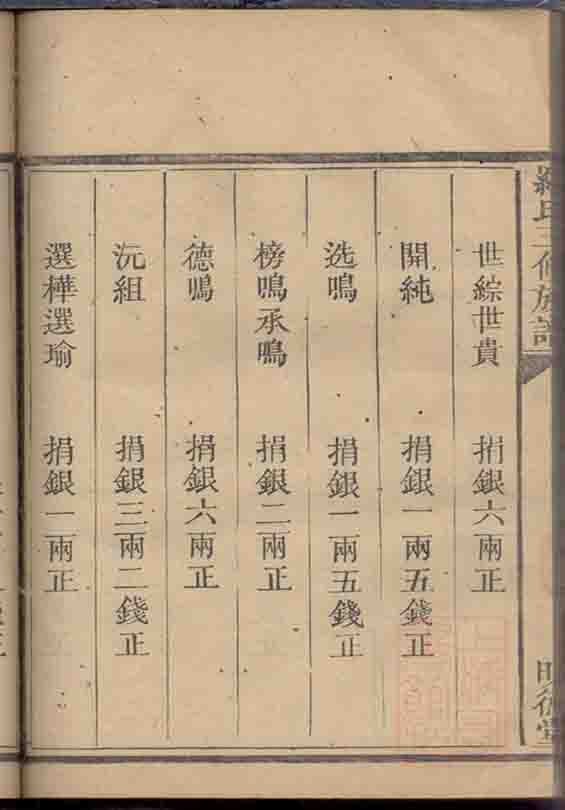 羅氏三修族譜
明德堂
世綜世貴 捐銀六兩正
開純 捐銀一兩五錢正
选鳴 捐銀一兩五錢正
榜鳴承鳴 捐銀二兩正
德鳴 捐銀六兩正
沅組 捐銀三兩二錢正
選樺選瑜 捐銀一兩正